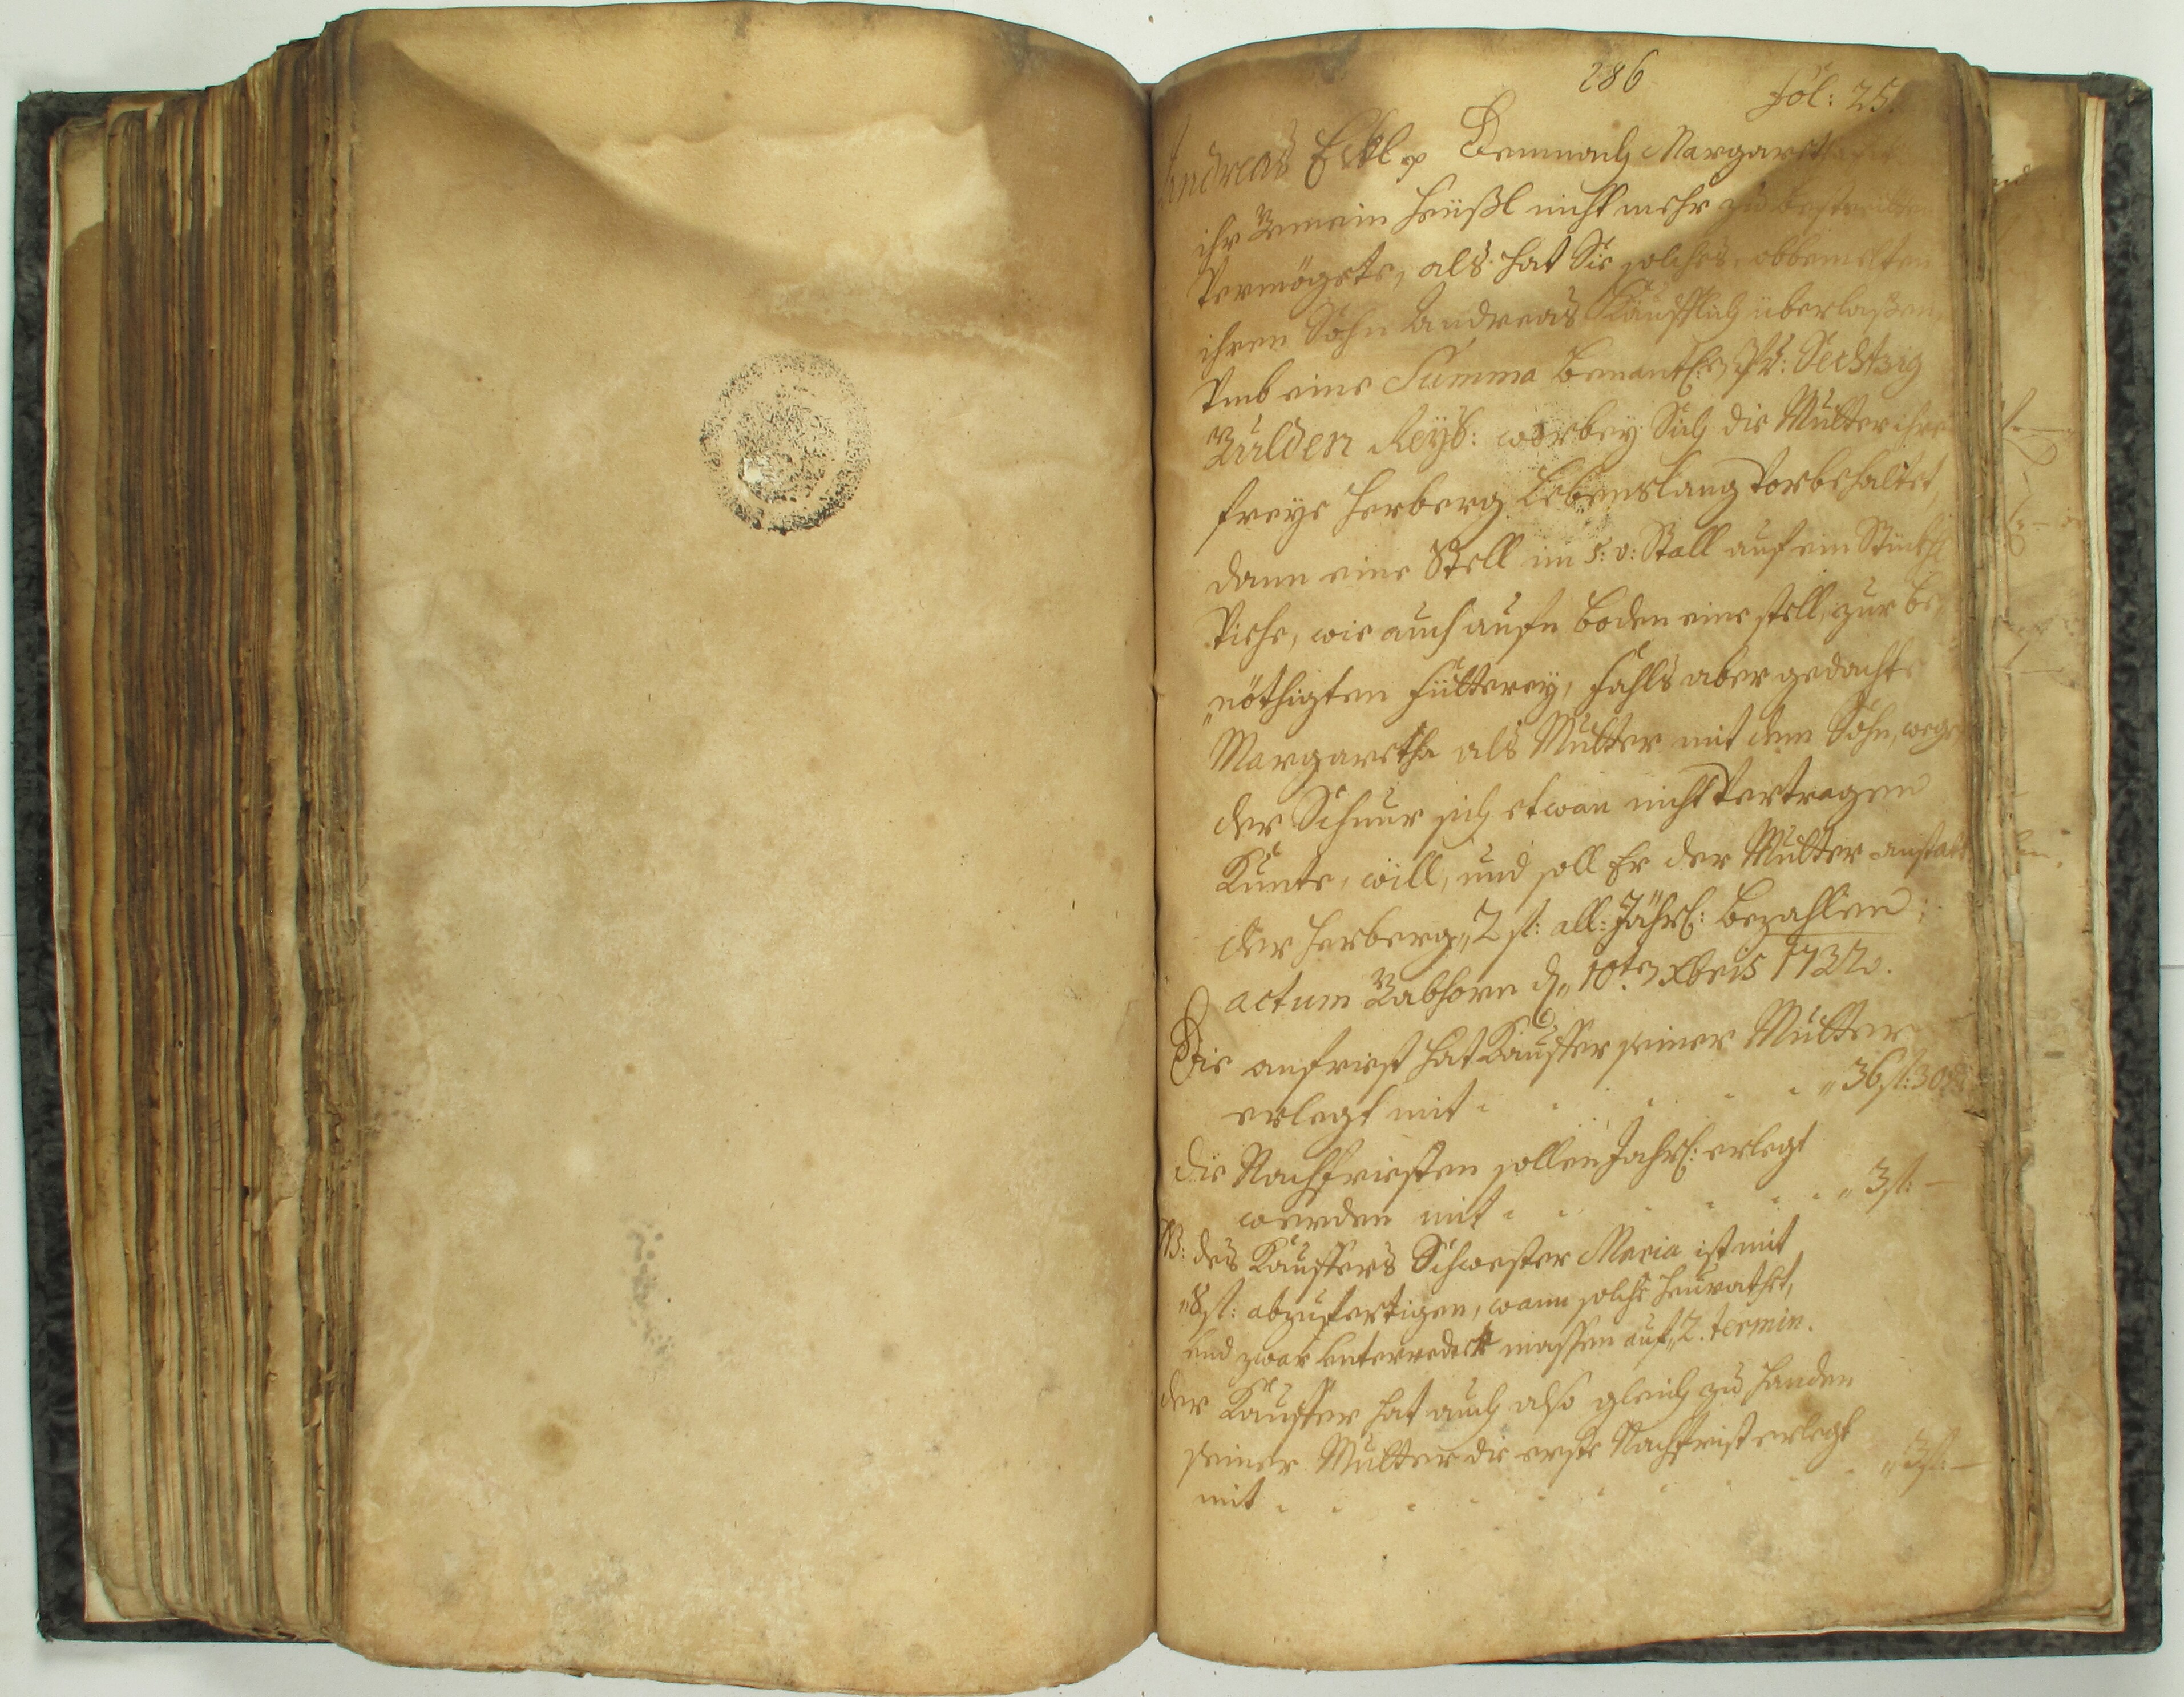 286
fol: 25.
Andreas Eckl ꝛc Demnach Margaretha
ihr Gmein Heüßl nicht mehr zu bestreitten
Vermögete, als hat Sie solches, obbemelten
ihren Sohn Andreas Kaüfflich überlaßen,
Vmb eine Summa Benantl: Pr: Sechtzig
Gulden Reÿs: worbey Sich die Mutter ihre
freÿe Herberg Lebenslang Vorbehaltet,
dann eine Stell im s: v: Stall auf ein Stückhl
Viehe, wie auch aufn Boden eine stell, zur be„
„nöthigten Fütterey, Fahls aber gedachte
Margaretha als Mutter mit dem Sohn, wegen
der Schnur sich etwan nicht Vertragen
Kunte, will, und soll Er der Mutter anstatt
der Herberg „2 fl: all: Jährl: Bezahlen;
actum Gabhorn d„ 10ten Xbris 1732.
Die anfriest hat Kauffer seiner Mutter
erlegt mit . . . . . „36 fl: 30 Xr
die Nachfriesten sollen Jahrl: erlegt
werden mit . . . . . . „3 fl: —
NB: des Kauffers Schwester Maria ist mit
„8 fl: abzufertigen, wann solche Heurathet,
und zwar unterredeter massen auf „2. termin.
der Kauffer hat auch also gleich zu Handen
seiner Mutter die erste Nachfrist erlegt
mit . . . . . . . . . „3 fl: —